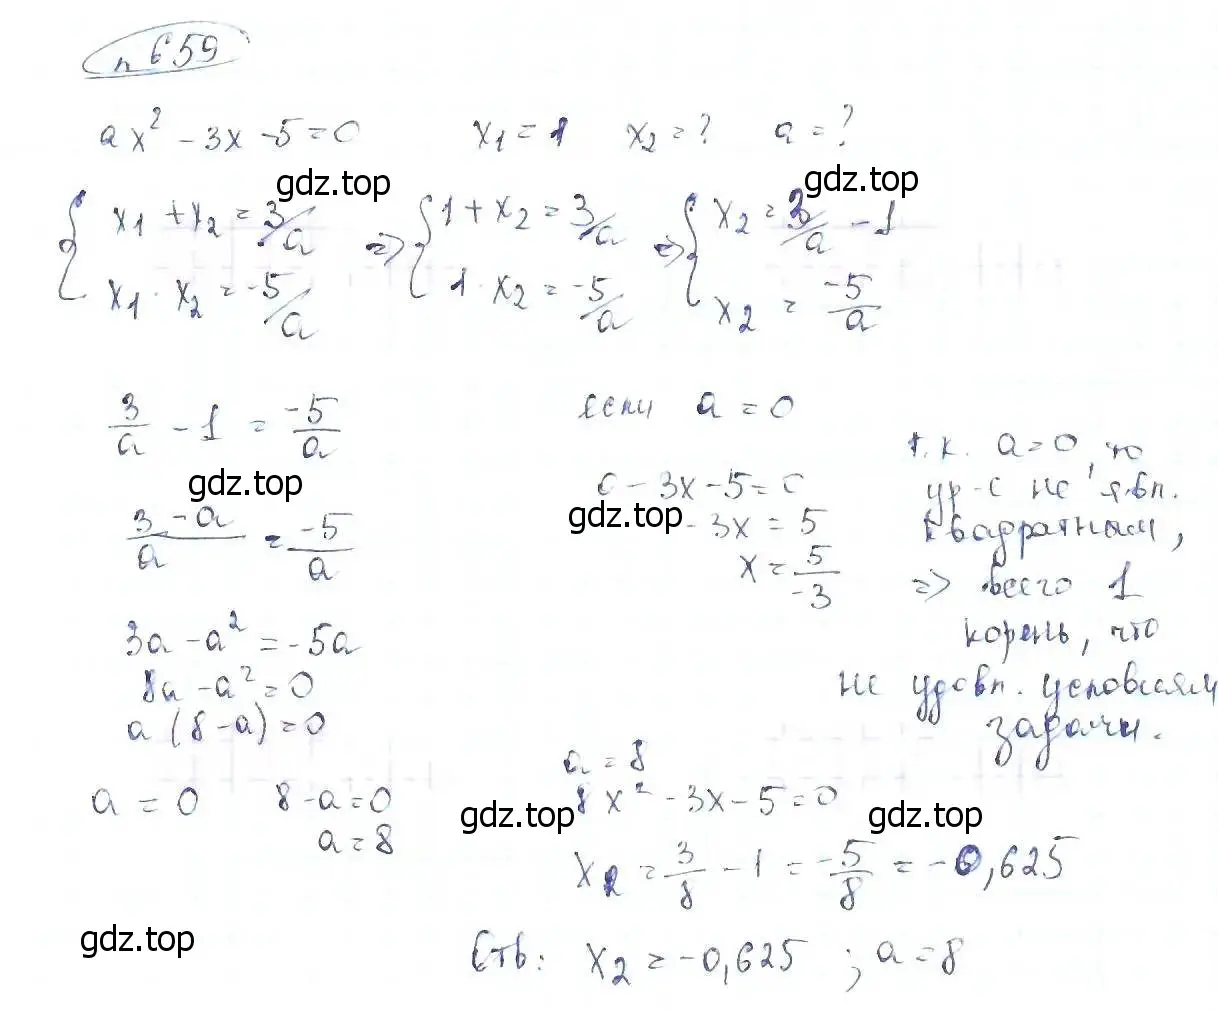 п 659
ax² - 3x - 5 = 0 x₁ = 1 x₂ = ? a = ?
gdz.top gdz.top
{ x₁ + x₂ = 3/a => { 1 + x₂ = 3/a => { x₂ = 3/a - 1
x₁ · x₂ = -5/a 1 · x₂ = -5/a x₂ = -5/a
3/a - 1 = -5/a
gdz.top
3 - a/a = -5/a
3a - a² = -5a
8a - a² = 0
a (8 - a) = 0
a = 0 8 - a = 0
a = 8
если a = 0
0 - 3x - 5 = 0
gdz.top
- 3x = 5
x = 5/-3
т.к. a = 0, то
ур-е не явл.
квадратным,
=> всего 1
корень, что
не удовл. условиям
задачи.
a = 8
8x² - 3x - 5 = 0
gdz.top gdz.top
x₂ = 3/8 - 1 = -5/8 = -0,625
gdz.top
Отв: x₂ = -0,625 ; a = 8